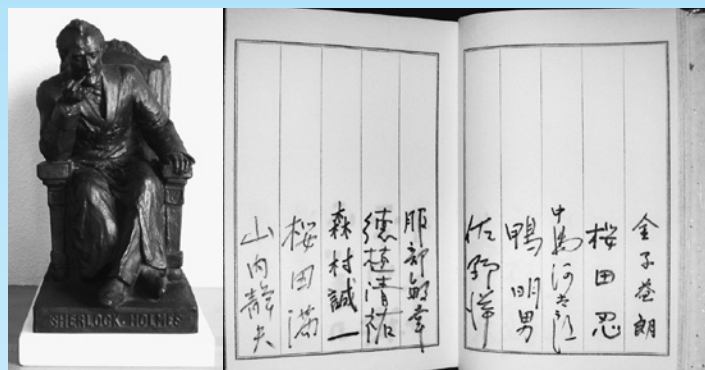 SHERLOCK·HOLMES
桜田忍
中島河太郎
鴨明男
佐野洋
服部敏幸
森村誠一
桜田満
山内静夫